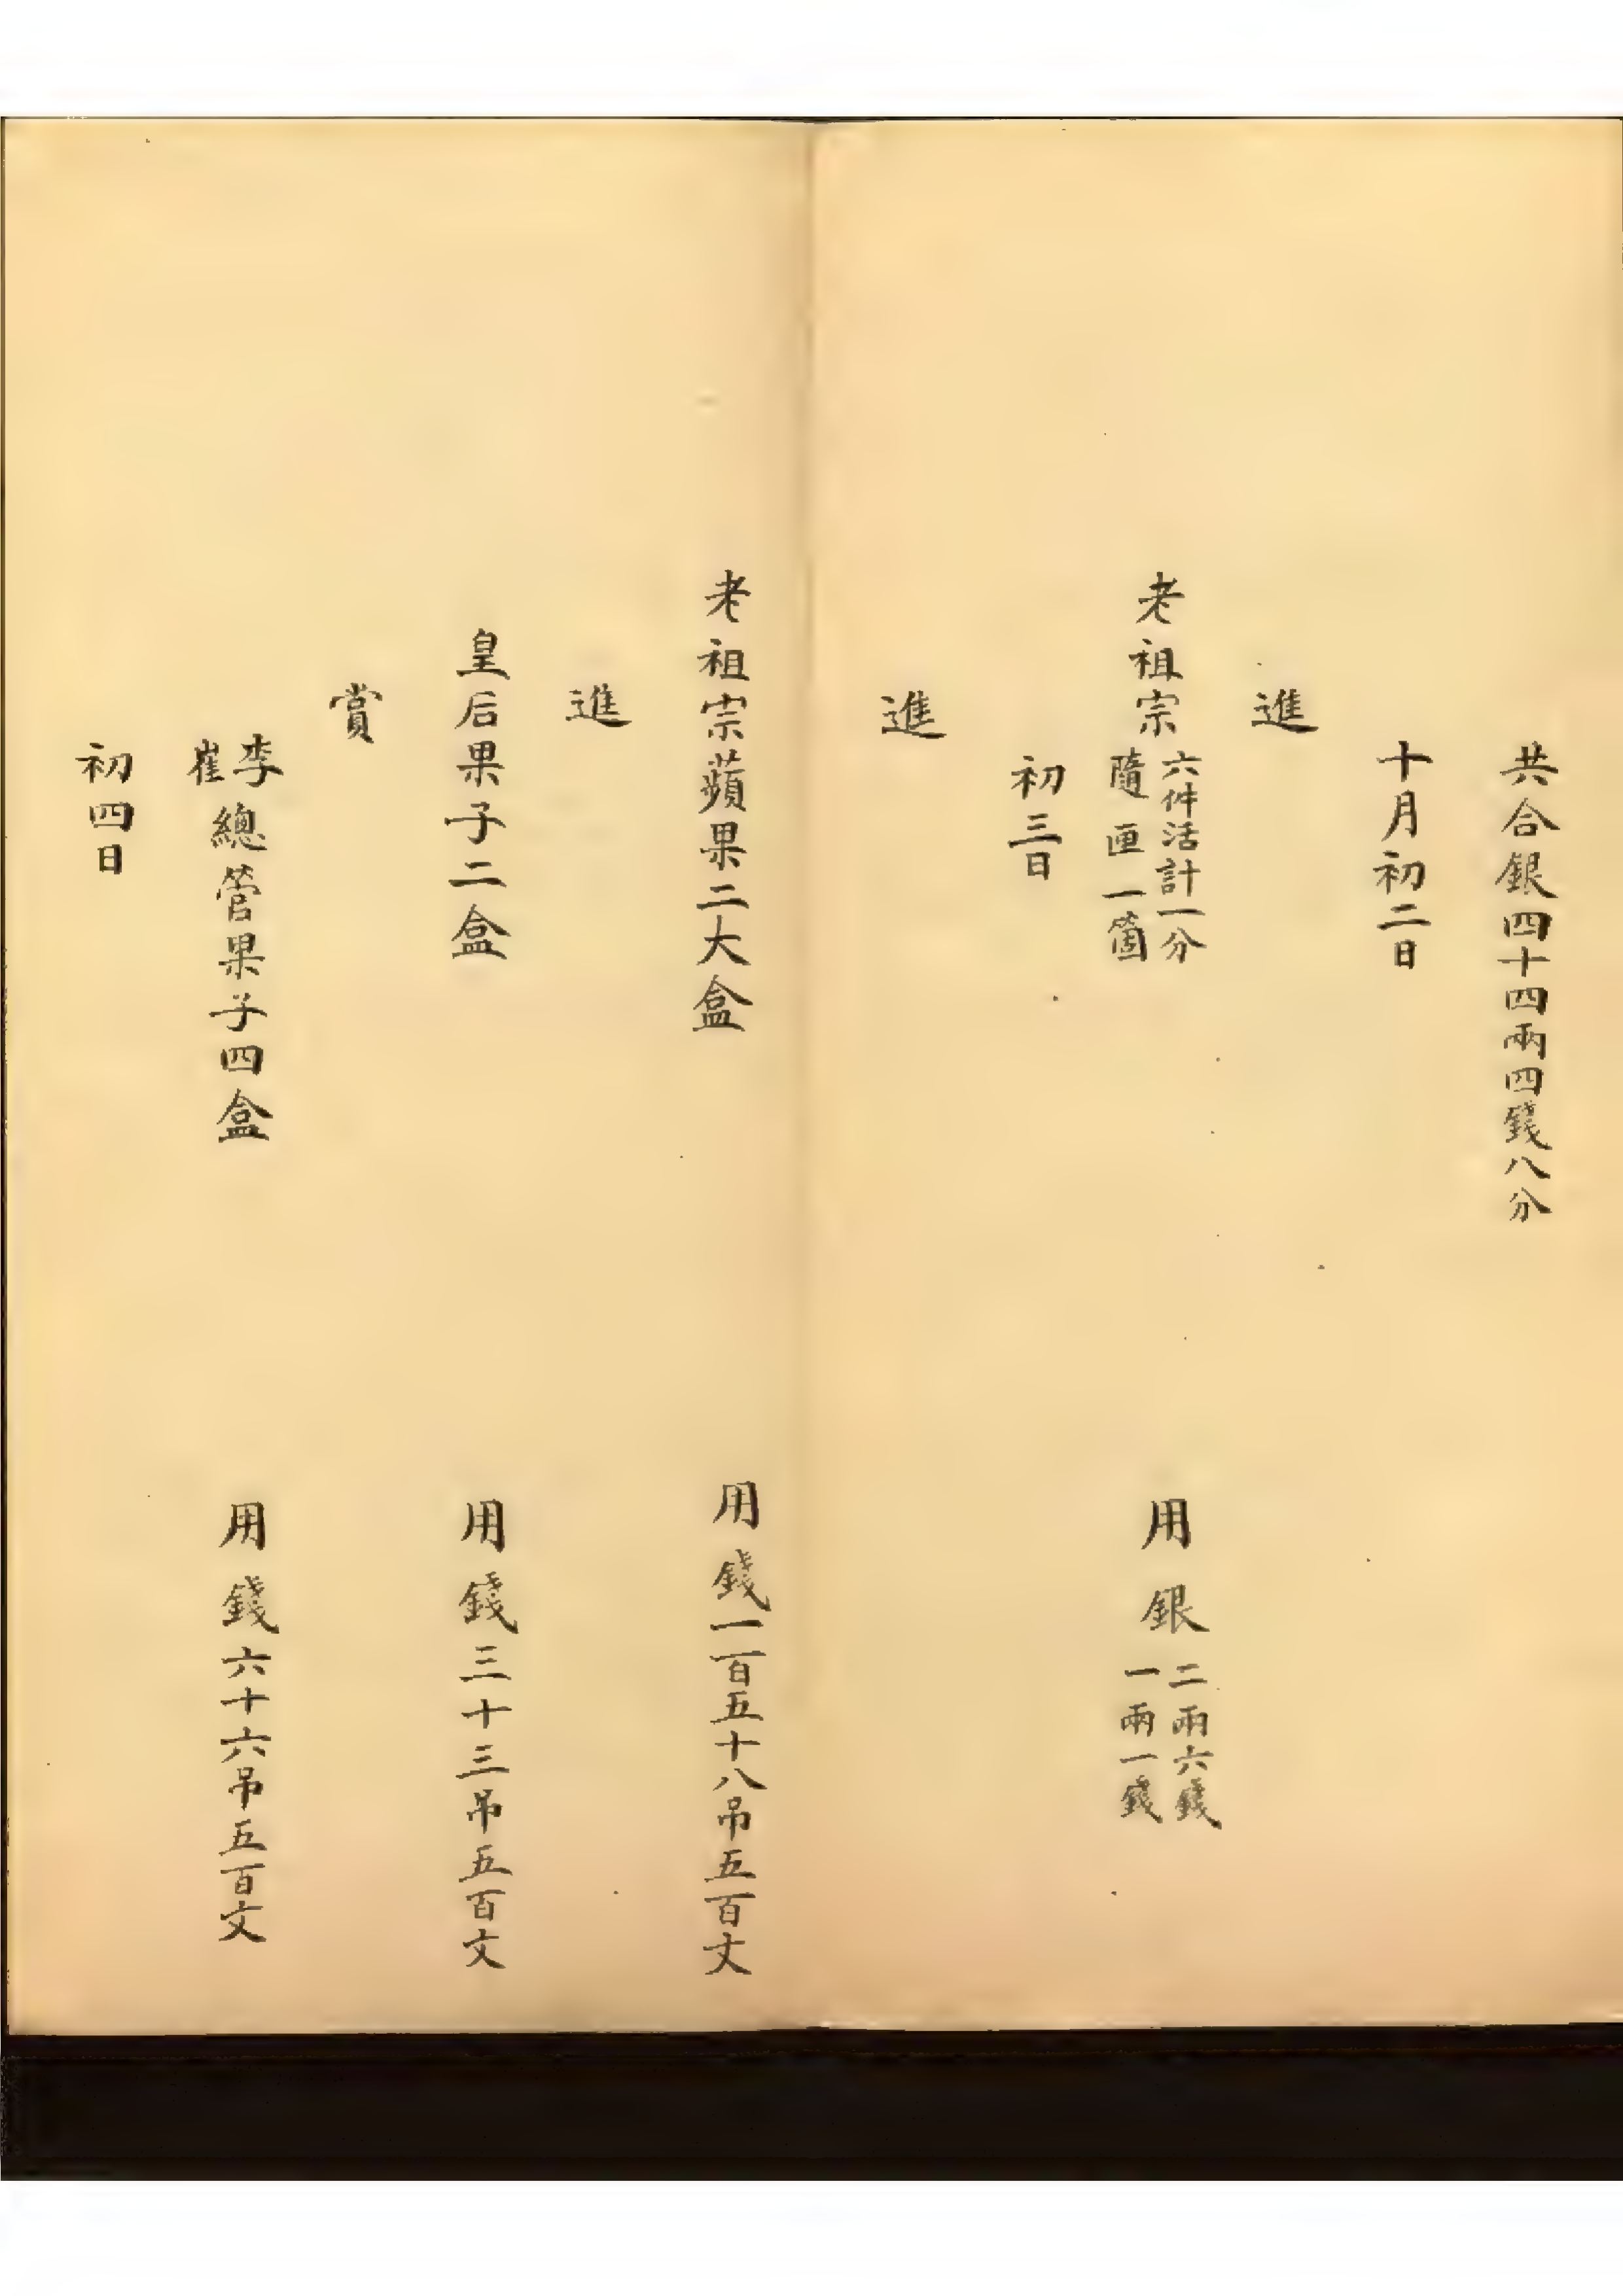 共合銀四十四兩四錢八分
十月初二日
進
老祖宗
六件活計一分
隨匣一箇
用銀
二兩六錢
一兩一錢
初三日
進
老祖宗蘋果二大盒 用錢一百五十八吊五百文
進
皇后果子二盒 用錢三十三吊五百文
賞
李崔總管果子四盒 用錢六十六吊五百文
初四日